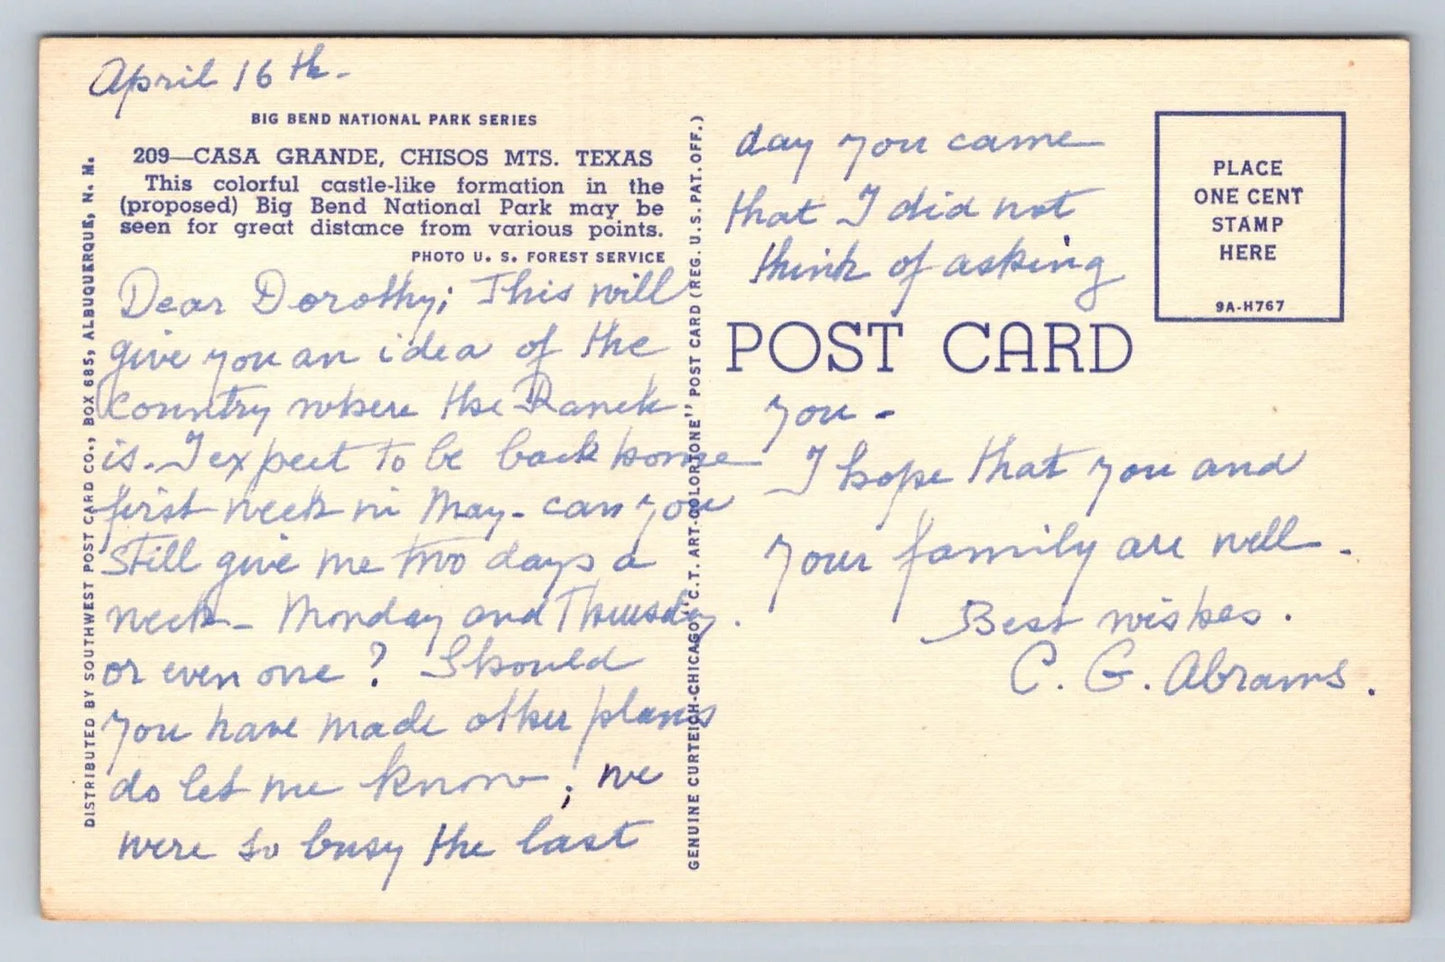 April 16th.
BIG BEND NATIONAL PARK SERIES
209—CASA GRANDE, CHISOS MTS. TEXAS
This colorful castle-like formation in the
(proposed) Big Bend National Park may be
seen for great distance from various points.
PHOTO U. S. FOREST SERVICE
Dear Dorothy; This will
give you an idea of the
country where the Ranch
is. I expect to be back home
first week in May - can you
still give me two days a
week - Monday and Thursday.
or even one? Should
you have made other plans
do let me know; we
were so busy the last
day you came
that I did not
think of asking
you -
I hope that you and
your family are well.
Best wishes.
C. G. Abrams.
POST CARD
PLACE
ONE CENT
STAMP
HERE
9A-H767
DISTRIBUTED BY SOUTHWEST POST CARD CO., BOX 685, ALBUQUERQUE, N. M.
GENUINE CURTEICH-CHICAGO "C.T. ART-COLORTONE" POST CARD (REG. U.S. PAT. OFF.)